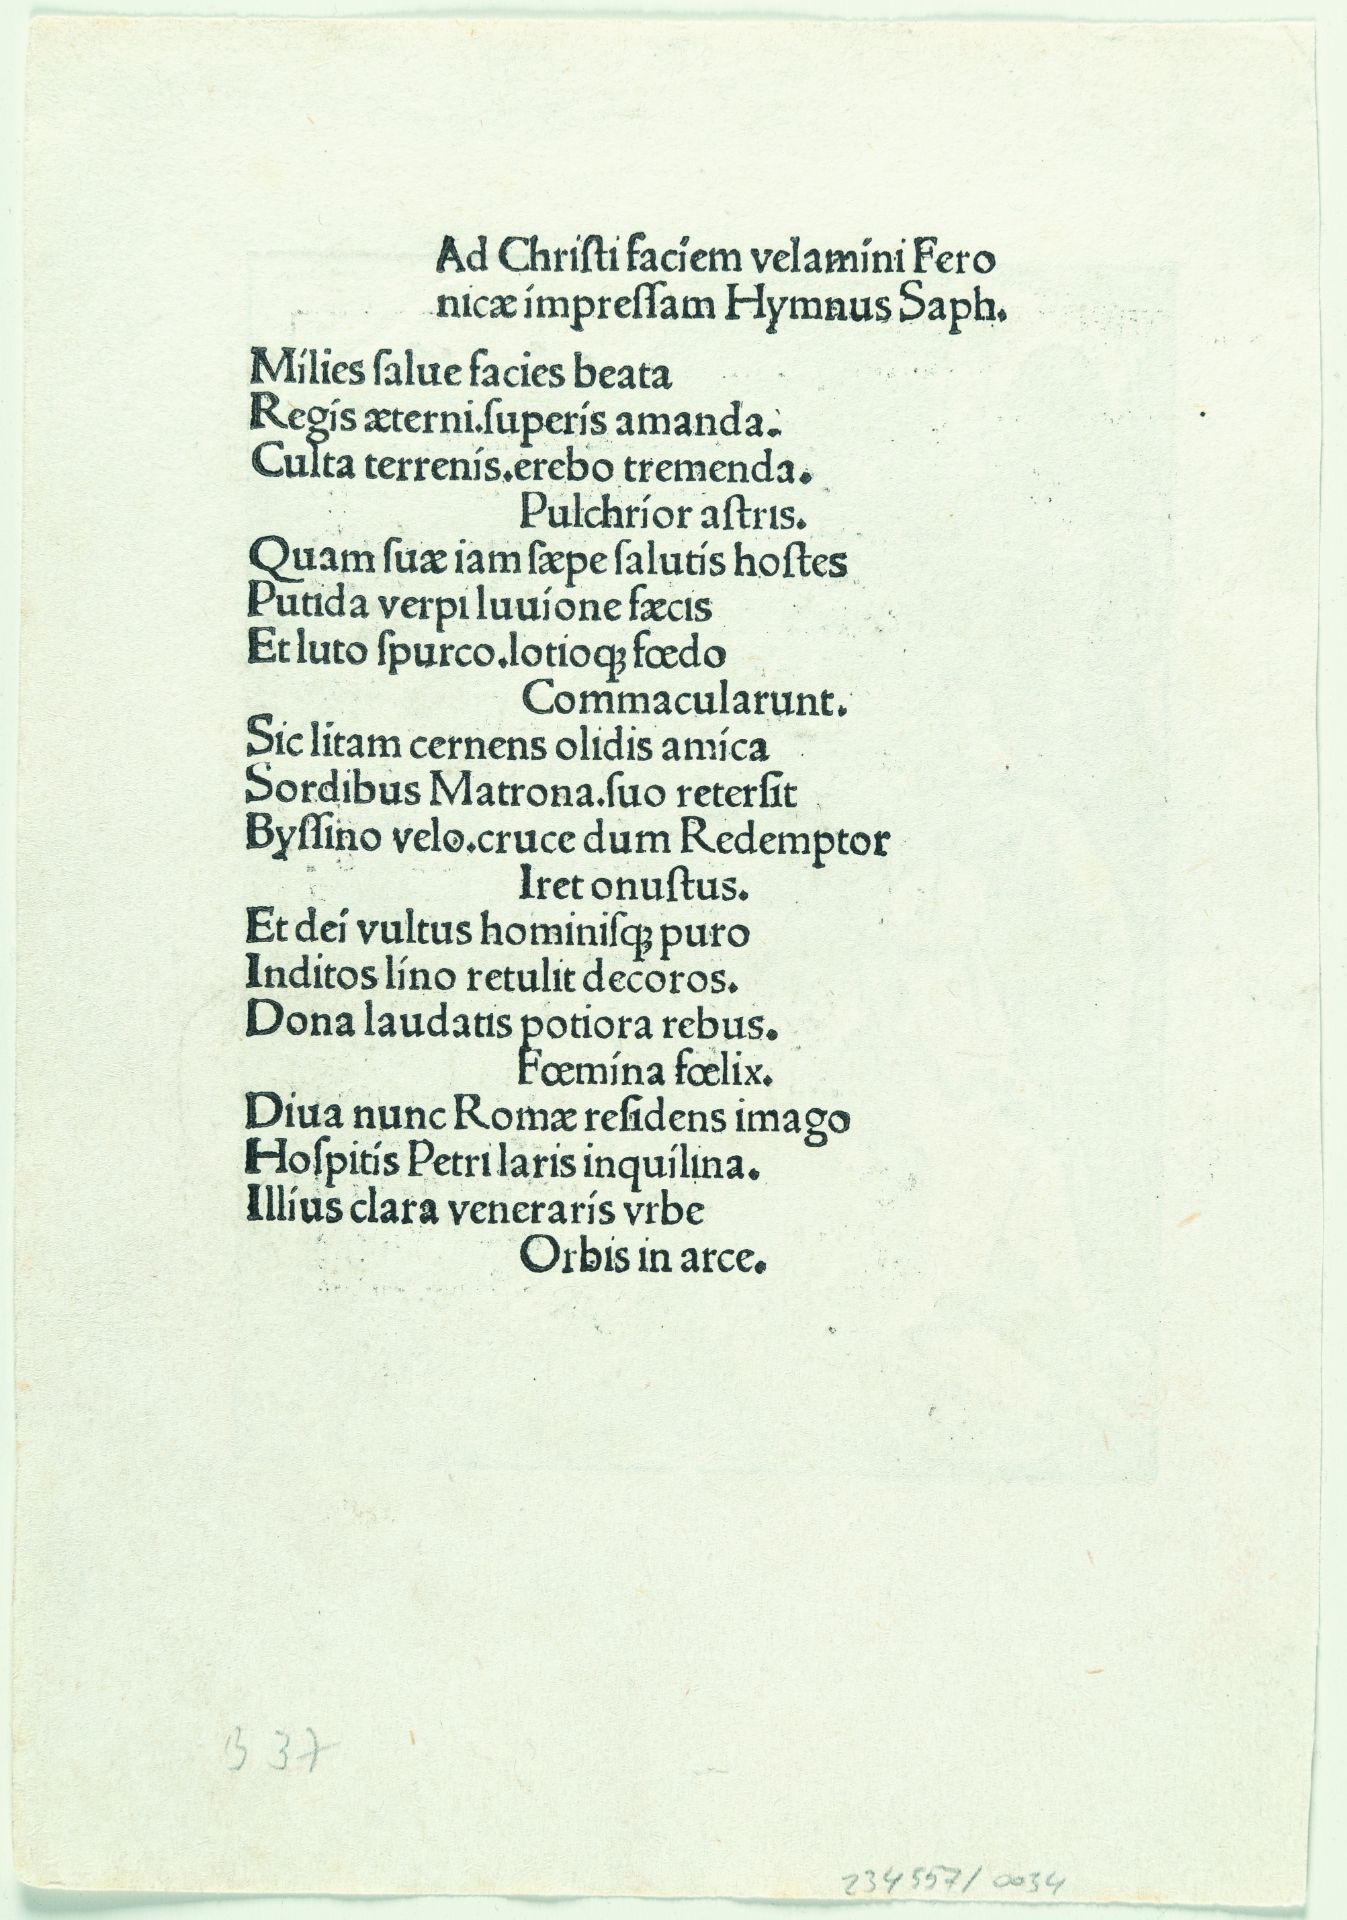 Ad Chriſti faciem velamini Fero
nicæ impreſſam Hymnus Saph.
Milies ſalue facies beata
Regis æterni.ſuperis amanda.
Culta terrenis.erebo tremenda.
Pulchrior aſtris.
Quam ſuæ iam ſæpe ſalutis hoſtes
Putida verpi luuione fæcis
Et luto ſpurco.lotioqꝫ fœdo
Commacularunt.
Sic litam cernens olidis amica
Sordibus Matrona.ſuo reterſit
Byſſino velo.cruce dum Redemptor
Iret onuſtus.
Et dei vultus hominiſqꝫ puro
Inditos lino retulit decoros.
Dona laudatis potiora rebus.
Fœmina fœlix.
Diua nunc Romæ reſidens imago
Hoſpitis Petri laris inquilina.
Illius clara veneraris vrbe
Orbis in arce.
B 37
234557/0034